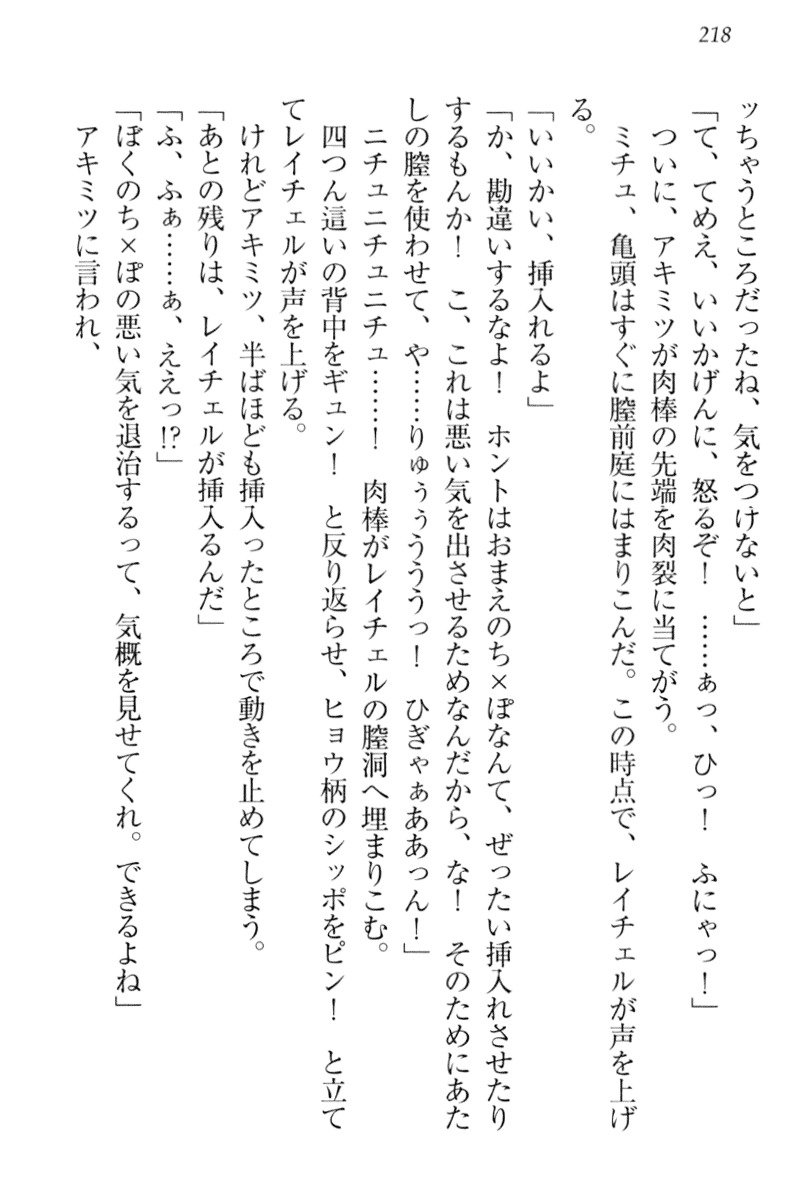 218
ッちゃうところだったね、気をつけないと」
「て、てめえ、いいかげんに、怒るぞ！　……ぁっ、ひっ！　ふにゃっ！」
　ついに、アキミツが肉棒の先端を肉裂に当てがう。
　ミチュ、亀頭はすぐに膣前庭にはまりこんだ。この時点で、レイチェルが声を上げ
る。
「いいかい、挿入れるよ」
「か、勘違いするなよ！　ホントはおまえのち×ぽなんて、ぜったい挿入れさせたり
するもんか！　こ、これは悪い気を出させるためなんだから、な！　そのためにあた
しの膣を使わせて、や……りゅぅぅううっ！　ひぎゃぁああっん！」
　ニチュニチュニチュ……！　肉棒がレイチェルの膣洞へ埋まりこむ。
　四つん這いの背中をギュン！　と反り返らせ、ヒョウ柄のシッポをピン！　と立て
てレイチェルが声を上げる。
　けれどアキミツ、半ばほども挿入ったところで動きを止めてしまう。
「あとの残りは、レイチェルが挿入るんだ」
「ふ、ふぁ……ぁ、ええっ!?」
「ぼくのち×ぽの悪い気を退治するって、気概を見せてくれ。できるよね」
　アキミツに言われ、